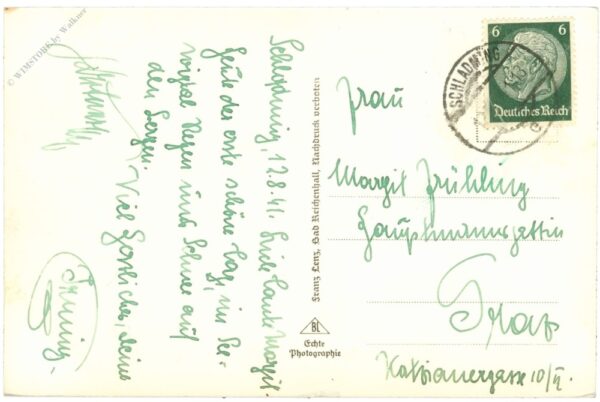 © WIMSTORY by Walkner
Schladming, 12.8.41. Liebe Tante Margit.
Heute der erste schöne Tag, im
Regen und Schnee auf
den Bergen.
Viel Herzliches, deine
Franz Lenz, Bad Reichenhall, Nachdruck verboten
BL
Echte
Photographie
6 6
Deutsches Reich
SCHLADMING
Frau
Margit Frühling
Hauptmannsgattin
Graz
Katzianergasse 10/II.